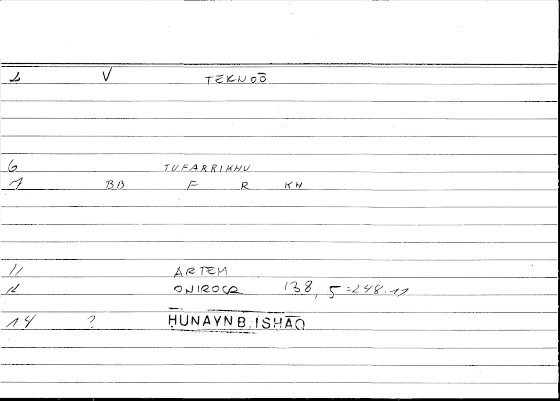 1 V TEKNOŌ
6 TUFARRIKHU
7 BB F R KH
11 ARTEM
12 ONIROCR 138, 5 = 248.11
14 ? HUNAYN B. ISHAQ